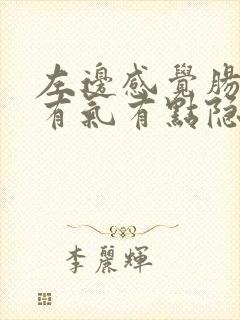 左邊感覺腸
有氣有點隐
李麗輝